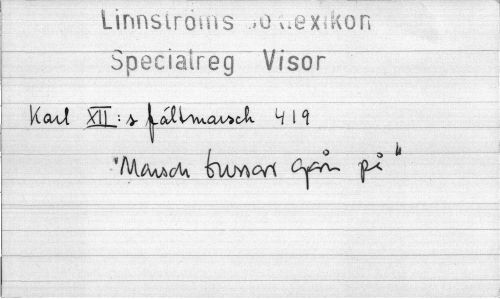 Linnströms Boklexikon
Specialreg Visor
Karl XII:s fältmarsch 419
"Marsch bussar gån på"